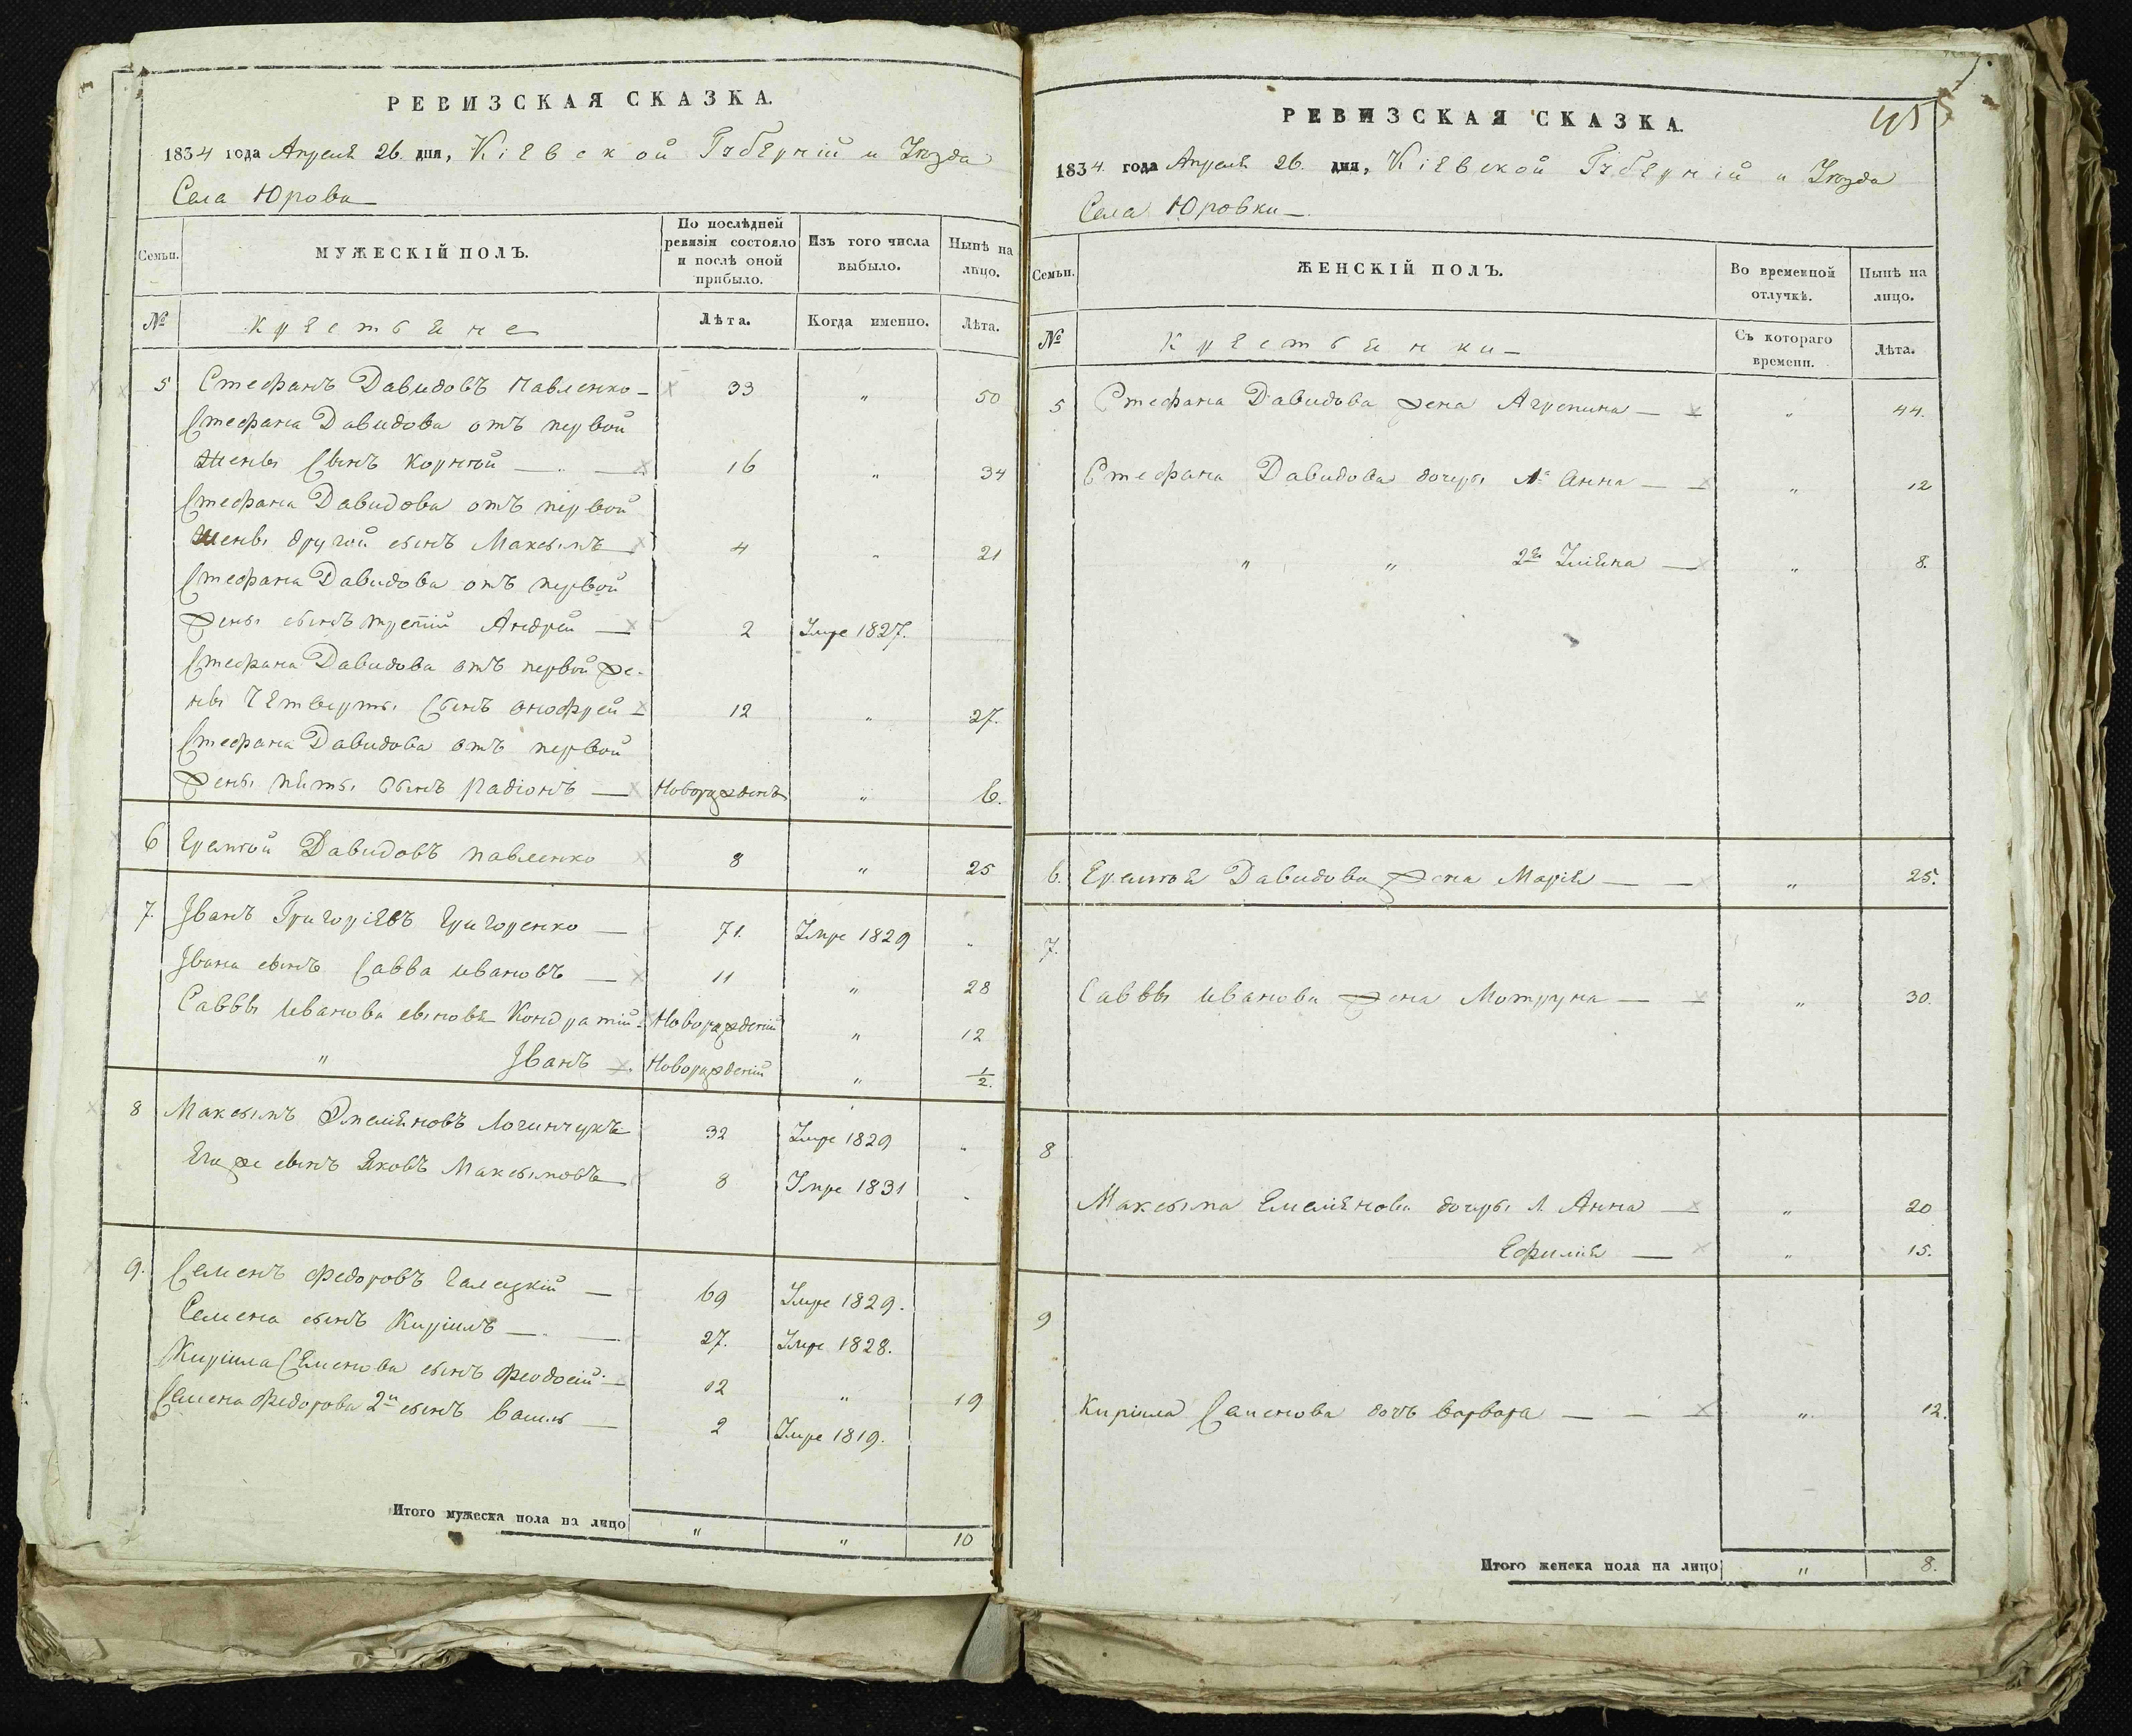 РЕВИЗСКАЯ СКАЗКА.
1834 года Апреля 26 дня, Кіевской Губерніи и Уезда
Села Юрова
Семьи.
МУЖЕСКІЙ ПОЛЪ.
По послѣдней ревизіи состояло и послѣ оной прибыло.
Изъ того числа выбыло.
Нынѣ на лицо.
№
Крестьяне
Лѣта.
Когда именно.
Лѣта.
5 Стефанъ Давидовъ Павленко — 33 „ 50
Стефана Давидова отъ первой
Жены Сынъ Корнѣй — 16 „ 34
Стефана Давидова отъ первой
Жены другой сынъ Максымъ 4 „ 21
Стефана Давидова отъ первой
жены сынъ третій Андрей — 2 Умре 1827.
Стефана Давидова отъ первой же-
ны Четверты Сынъ Онофрей — 12 „ 27.
Стефана Давидова отъ первой
жены пяты Сынъ Радіонъ — Новорожденъ „ 6.
6 Еремѣй Давидовъ Павленко 8 „ 25
7. Іванъ Григоріевъ Григоренко — 71. Умре 1829 „
Івана сынъ Савва Ивановъ — 11 „ 28
Саввы Иванова сыновя Кондратій. Новорожденій „ 12
„ Іванъ — Новорожденій „ 1/2.
8 Максымъ Омеляновъ Логинчукъ 32 Умре 1829 „
Его же сынъ Яковъ Максымовъ 8 Умре 1831 „
9. Семенъ Федоровъ Галецкій — 69 Умре 1829.
Семена сынъ Кирилъ — 27. Умре 1828.
Кирила Семенова сынъ Феодосій — 12 „ 19
Семена Федорова 2й сынъ Василь — 2 Умре 1819.
Итого мужеска пола на лицо „ „ 10
РЕВИЗСКАЯ СКАЗКА.
1834 года Апреля 26. дня, Кіевской Губерніи и Уезда
Села Юровки —
Семьи.
ЖЕНСКІЙ ПОЛЪ.
Во временной отлучкѣ.
Нынѣ на лицо.
№
Крестьянки —
Съ котораго времени.
Лѣта.
5 Стефана Давидова жена Агрепина — „ 44.
Стефана Давидова дочеры 1я Анна — „ 12
„ „ 2я Уліяна — „ 8.
6. Еремѣя Давидова жена Марія — „ 25.
7.
Саввы Иванова жена Мотруна — „ 30.
8
Максыма Емелянова дочеры 1. Анна — „ 20
Ефимія — „ 15.
9
Кирила Семенова дочъ Варвара — „ 12.
Итого женска пола на лицо „ 8.